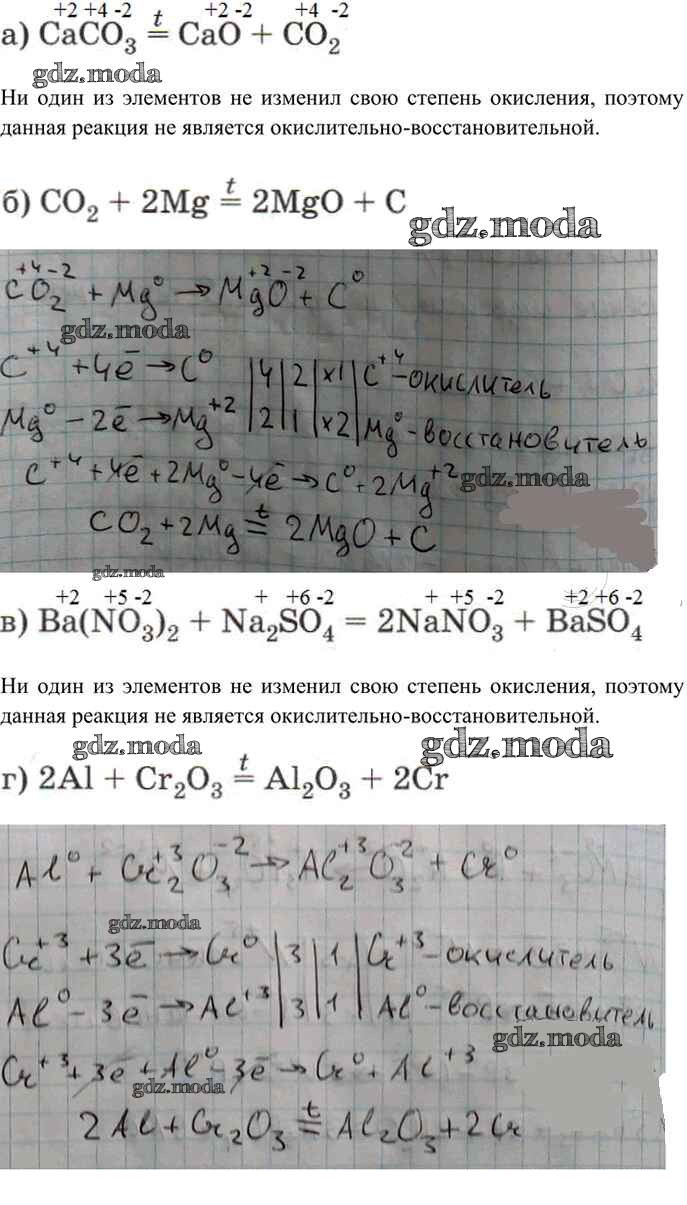 +2 +4 -2 +2 -2 +4 -2
а) CaCO₃ =ᵗ CaO + CO₂
gdz.moda
Ни один из элементов не изменил свою степень окисления, поэтому
данная реакция не является окислительно-восстановительной.
б) CO₂ + 2Mg =ᵗ 2MgO + C
gdz.moda
+4 -2 +2 -2
CO₂ + Mg⁰ → MgO + C⁰
gdz.moda
C⁺⁴ + 4ē → C⁰ |4|2|×1| C⁺⁴ - окислитель
Mg⁰ - 2ē → Mg⁺² |2|1|×2| Mg⁰ - восстановитель
C⁺⁴ + 4ē + 2Mg⁰ - 4ē → C⁰ + 2Mg⁺²
gdz.moda
CO₂ + 2Mg =ᵗ 2MgO + C
gdz.moda
+2 +5 -2 + +6 -2 + +5 -2 +2 +6 -2
в) Ba(NO₃)₂ + Na₂SO₄ = 2NaNO₃ + BaSO₄
Ни один из элементов не изменил свою степень окисления, поэтому
данная реакция не является окислительно-восстановительной.
gdz.moda gdz.moda
г) 2Al + Cr₂O₃ =ᵗ Al₂O₃ + 2Cr
Al⁰ + Cr₂⁺³O₃⁻² → Al₂⁺³O₃⁻² + Cr⁰
gdz.moda
Cr⁺³ + 3ē → Cr⁰ |3|1| Cr⁺³ - окислитель
Al⁰ - 3ē → Al⁺³ |3|1| Al⁰ - восстановитель
gdz.moda
Cr⁺³ + 3ē + Al⁰ - 3ē → Cr⁰ + Al⁺³
gdz.moda
2Al + Cr₂O₃ =ᵗ Al₂O₃ + 2Cr